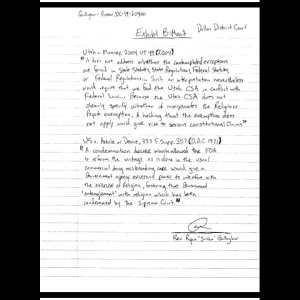 Gallagher - Dallas, DC-19-20400
Dallas District Court
Exhibit B:
Utah v. Mooney, 2004 UT 49 (2004)
"It does not address whether the contemplated exceptions
are found in State Statutes, State Regulations, Federal Statutes,
or Federal Regulations... Such an interpretation nonetheless
would require that we find the Utah CSA in conflict with
Federal Law... Because the Utah CSA does not
clearly specify whether it incorporates the Religious
Peyote exemption. A holding that the exemption does
not apply would give rise to serious constitutional Claims"
US v. Article or Device, 333 F.Supp. 357 (D.D.C. 1971)
"A condemnation decree which allowed the FDA
to reform the writings as is done in the usual
commercial drug misbranding case would give a
Government agency excessive power to interfere with
the exercise of Religion, fostering that Government
'entanglement' with religion which has been
condemned by the Supreme Court."
Rev. Ryan "Sasha" Gallagher